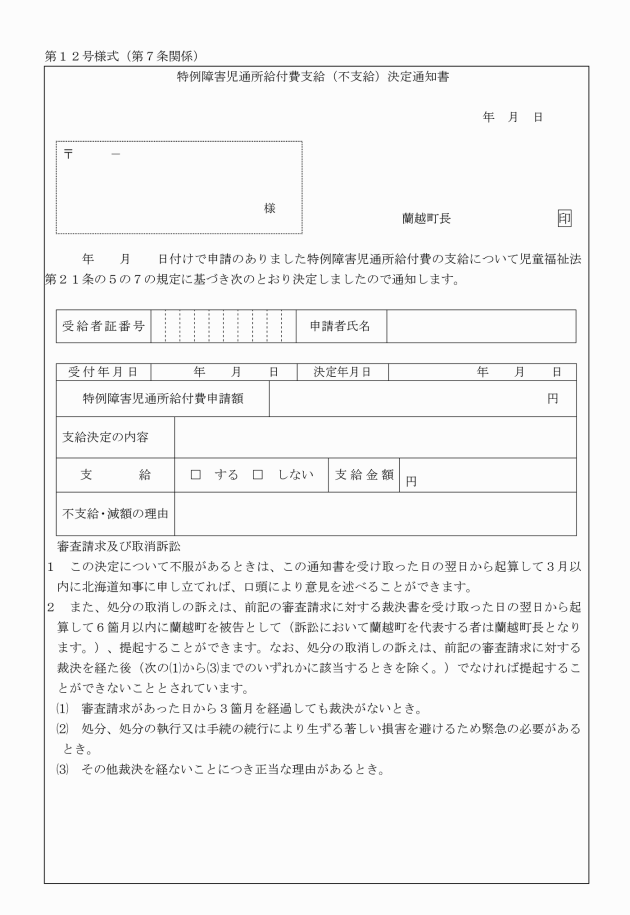 第１２号様式（第７条関係）
特例障害児通所給付費支給（不支給）決定通知書
年　月　日
〒　　－
様
蘭越町長　　印
年　　月　　日付けで申請のありました特例障害児通所給付費の支給について児童福祉法
第２１条の５の７の規定に基づき次のとおり決定しましたので通知します。
受給者証番号　　申請者氏名
受付年月日　　年　　月　　日　　決定年月日　　年　　月　　日
特例障害児通所給付費申請額　　円
支給決定の内容
支　　給　　□　する　□　しない　　支給金額　　円
不支給・減額の理由
審査請求及び取消訴訟
１　この決定について不服があるときは、この通知書を受け取った日の翌日から起算して３月以
内に北海道知事に申し立てれば、口頭により意見を述べることができます。
２　また、処分の取消しの訴えは、前記の審査請求に対する裁決書を受け取った日の翌日から起
算して６箇月以内に蘭越町を被告として（訴訟において蘭越町を代表する者は蘭越町長となり
ます。）、提起することができます。なお、処分の取消しの訴えは、前記の審査請求に対する
裁決を経た後（次の⑴から⑶までのいずれかに該当するときを除く。）でなければ提起するこ
とができないこととされています。
⑴　審査請求があった日から３箇月を経過しても裁決がないとき。
⑵　処分、処分の執行又は手続の続行により生ずる著しい損害を避けるため緊急の必要がある
とき。
⑶　その他裁決を経ないことにつき正当な理由があるとき。